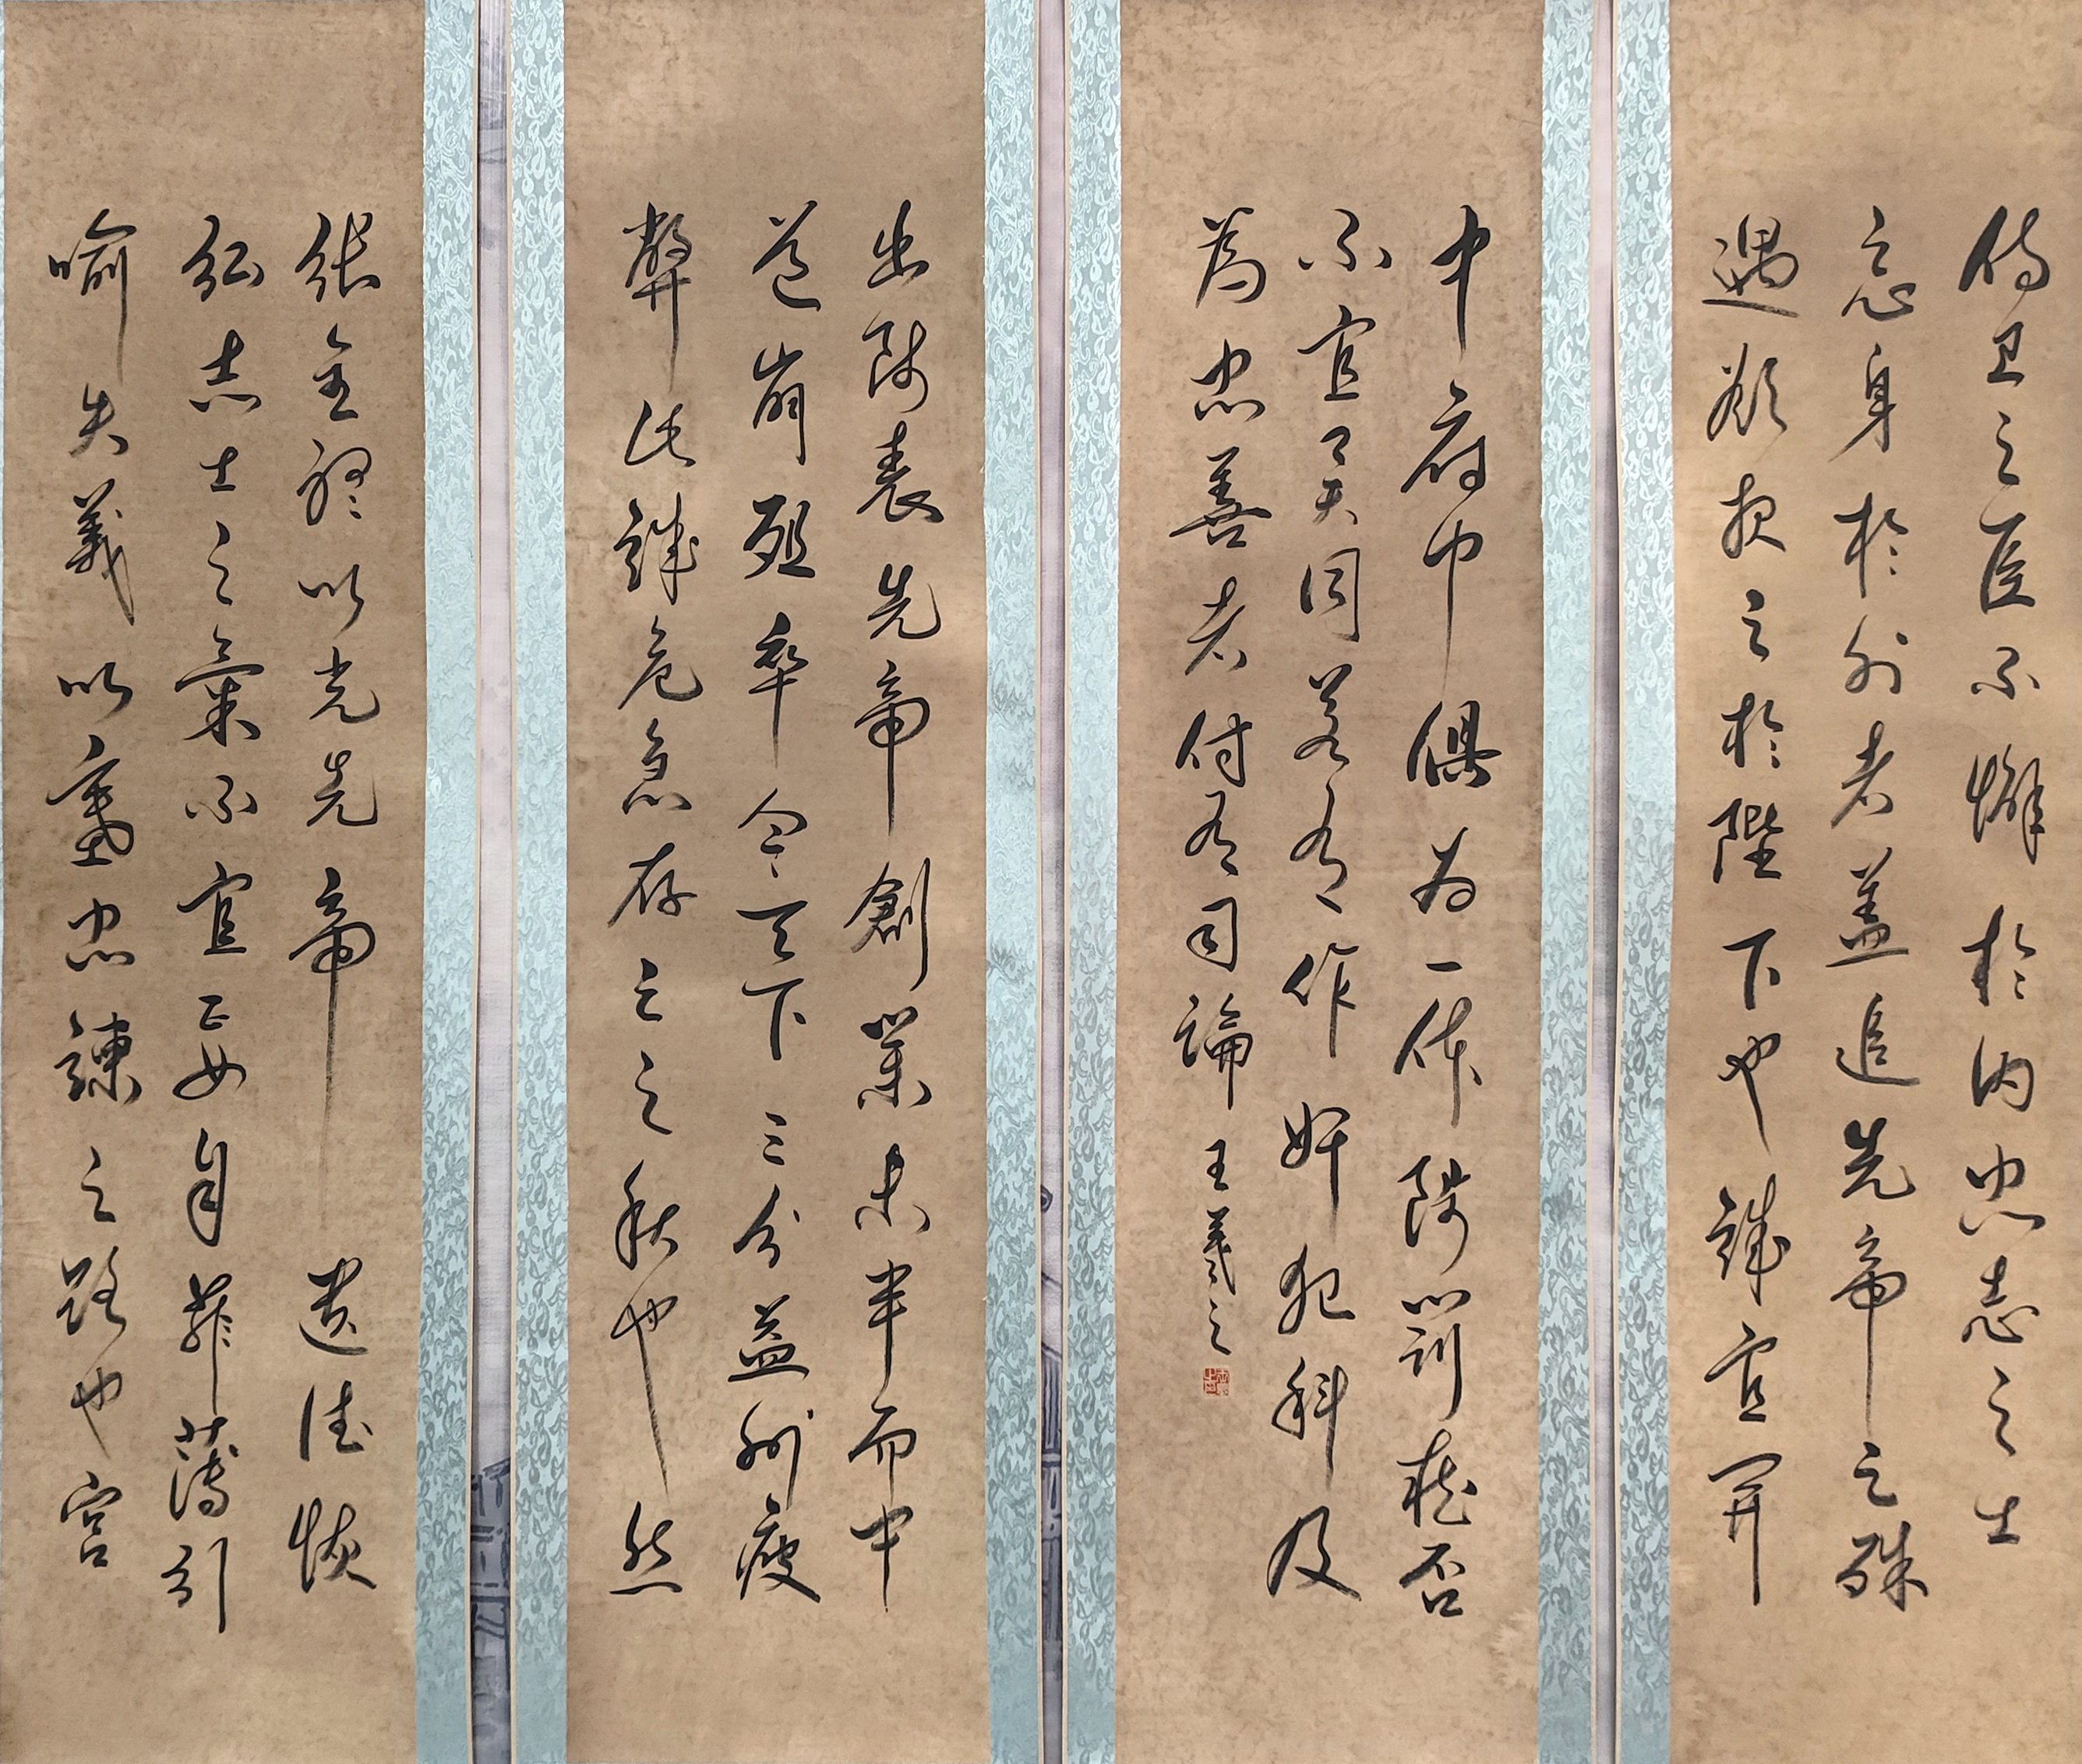 侍卫之臣不懈於内忠志之士
忘身於外者盖追先帝之殊
遇欲报之於陛下也誠宜開
中府中俱为一体陟罰臧否
不宜異同若有作奸犯科及
為忠善者付有司論 王羲之
出師表先帝創業未半而中
道崩殂率今天下三分益州疲
弊此誠危急存亡之秋也然
張圣聽以光先帝遺德恢
弘志士之氣不宜妄自菲薄引
喻失義以塞忠諫之路也宮